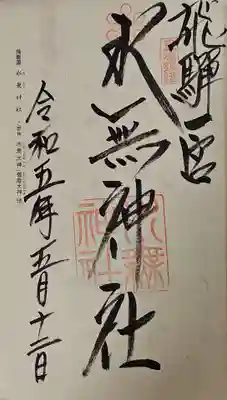 飛騨一宮
水無神社
令和五年五月十二日